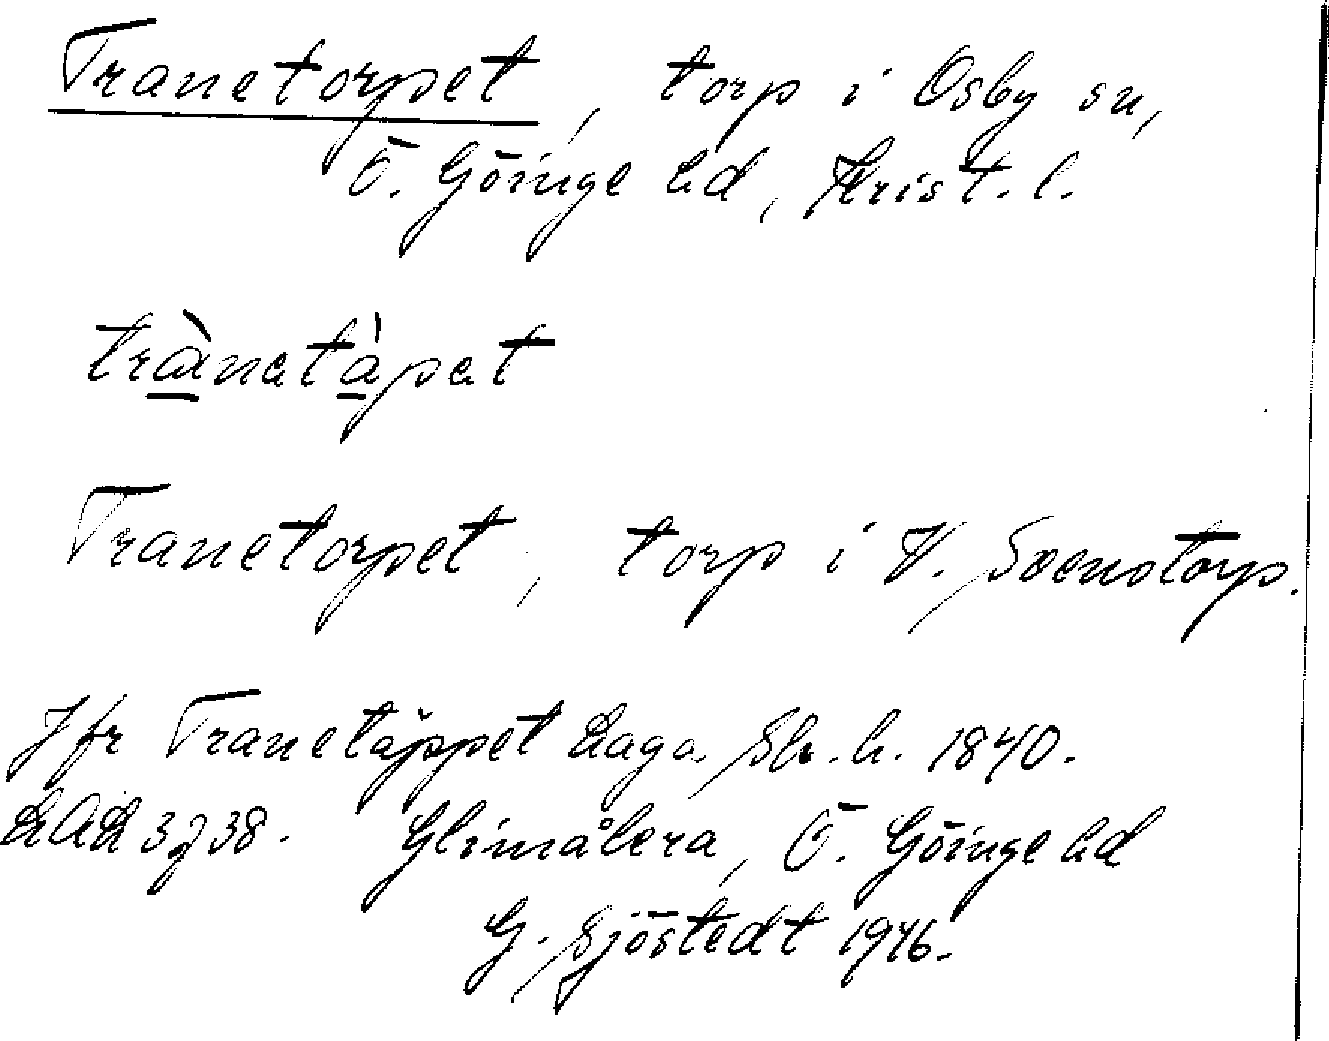 Tranetorpet, torp i Osby sn,
Ö. Göinge hd, Krist. l.
trànatàpat
Tranetorpet, torp i V. Svenstorp.
Jfr Tranetäppet Laga Sk. h. 1840.
Glimåkra, Ö. Göinge hd
G. Sjöstedt 1946.